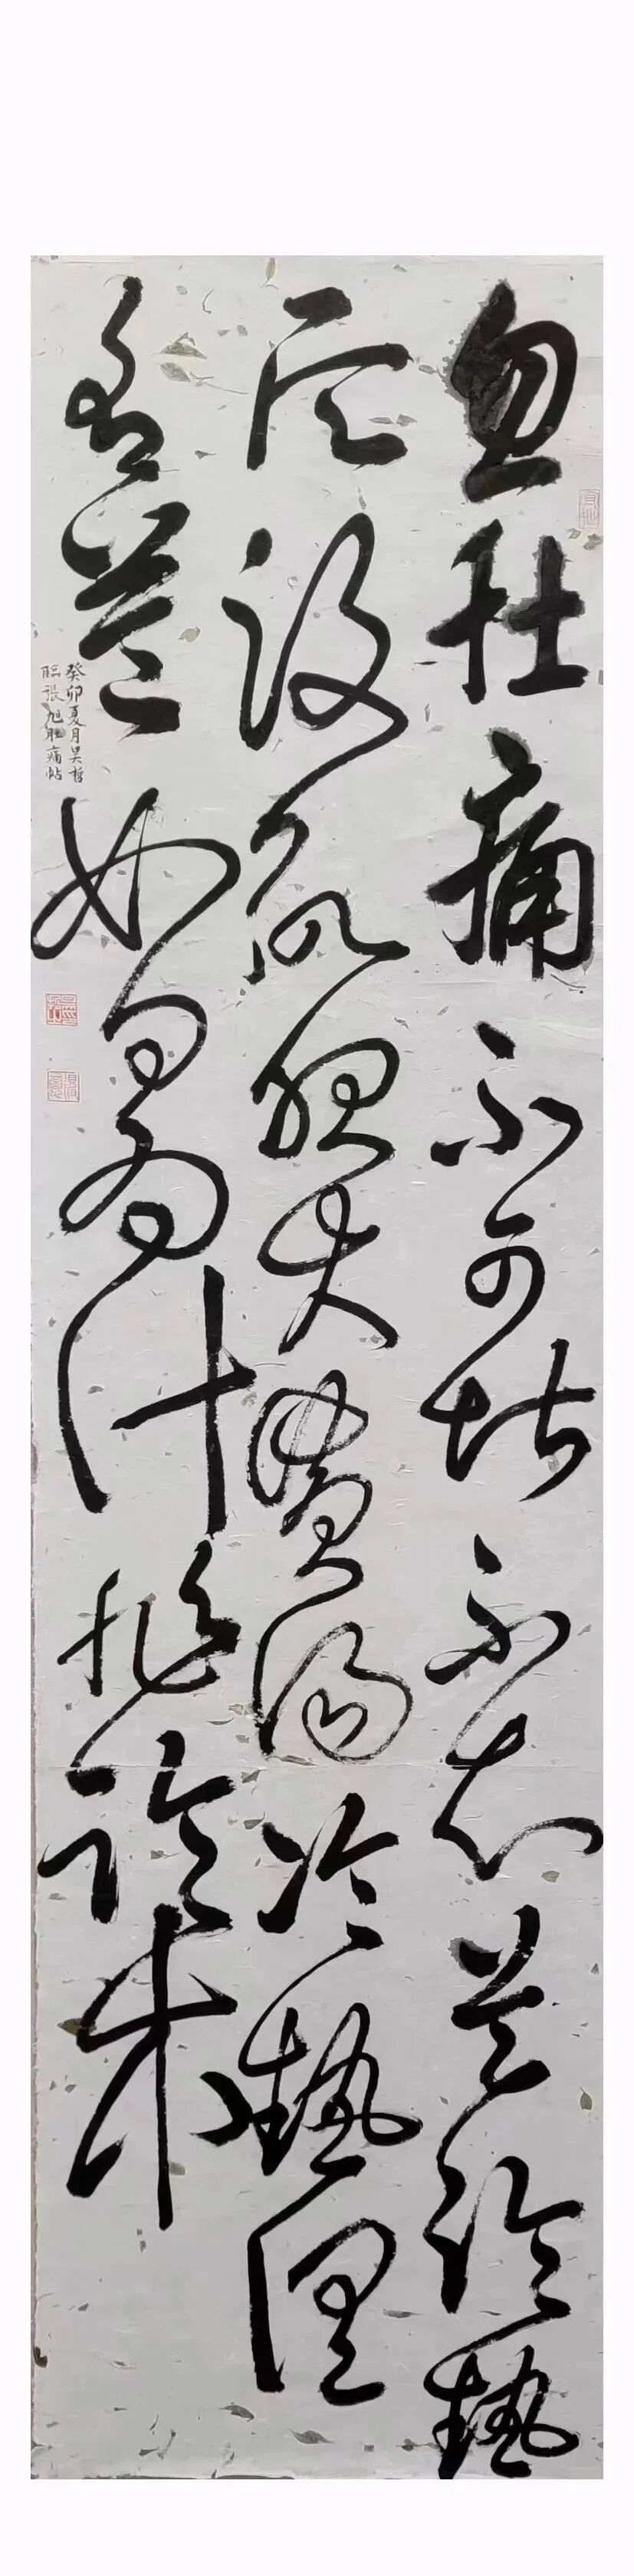 忽肚痛不可堪不知是冷熱
所致欲服大黃湯冷熱俱
有益如何為計非臨床
癸卯夏月吴哲
臨張旭肚痛帖